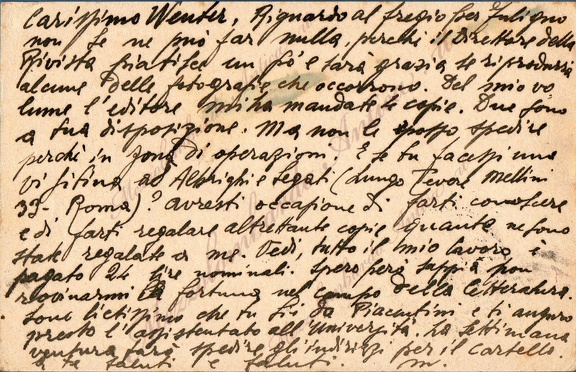 Carissimo Wenter, Riguardo al fregio per Fuligno
non se ne può far nulla, perché il Direttore della
Rivista fiatisce un pò e sarà grazia se riprodurrà
alcune delle fotografie che occorrono. Del mio vo-
lume l'editore mi ha mandate 4 copie. Due sono
a tua disposizione. Ma non le posso spedire
perché in zona di operazioni. E se tu facessi una
visitina ad Albrighi e Segati (Lungo Tevere Mellini
33-, Roma)? avresti occasione di farti conoscere
e di farti regalare altrettante copie quante ne sono
state regalate a me. Vedi, tutto il mio lavoro è
pagato 24 lire nominali. Spero però sappia non
rovinarmi la fortuna nel campo della letteratura.
Sono lietissimo che tu sia da Piacentini e ti auguro
presto l'assistentato all'università. La settimana
ventura farà spedire gli indirizzi per il cartello.
a te saluti e saluti. m.